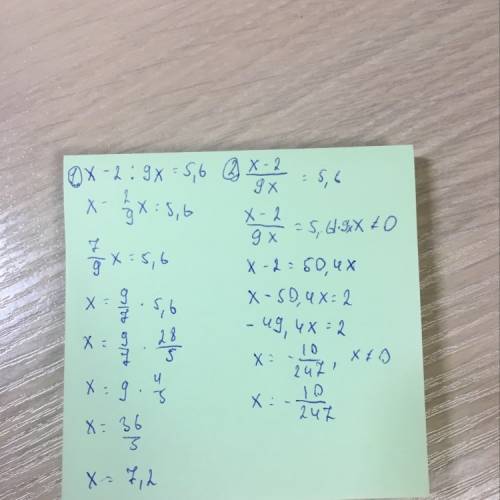 ① x - 2 : 9x = 5,6
x - 2/9 x = 5,6
7/9 x = 5,6
x = 9/7 · 5,6
x = 9/7 · 28/5
x = 9 · 4/5
x = 36/5
x = 7,2
② x - 2 / 9x = 5,6
x - 2 / 9x = 5,6 9x x ≠ 0
x - 2 = 50,4x
x - 50,4x = 2
- 49,4x = 2
x = - 10/247, x ≠ 0
x = - 10/247